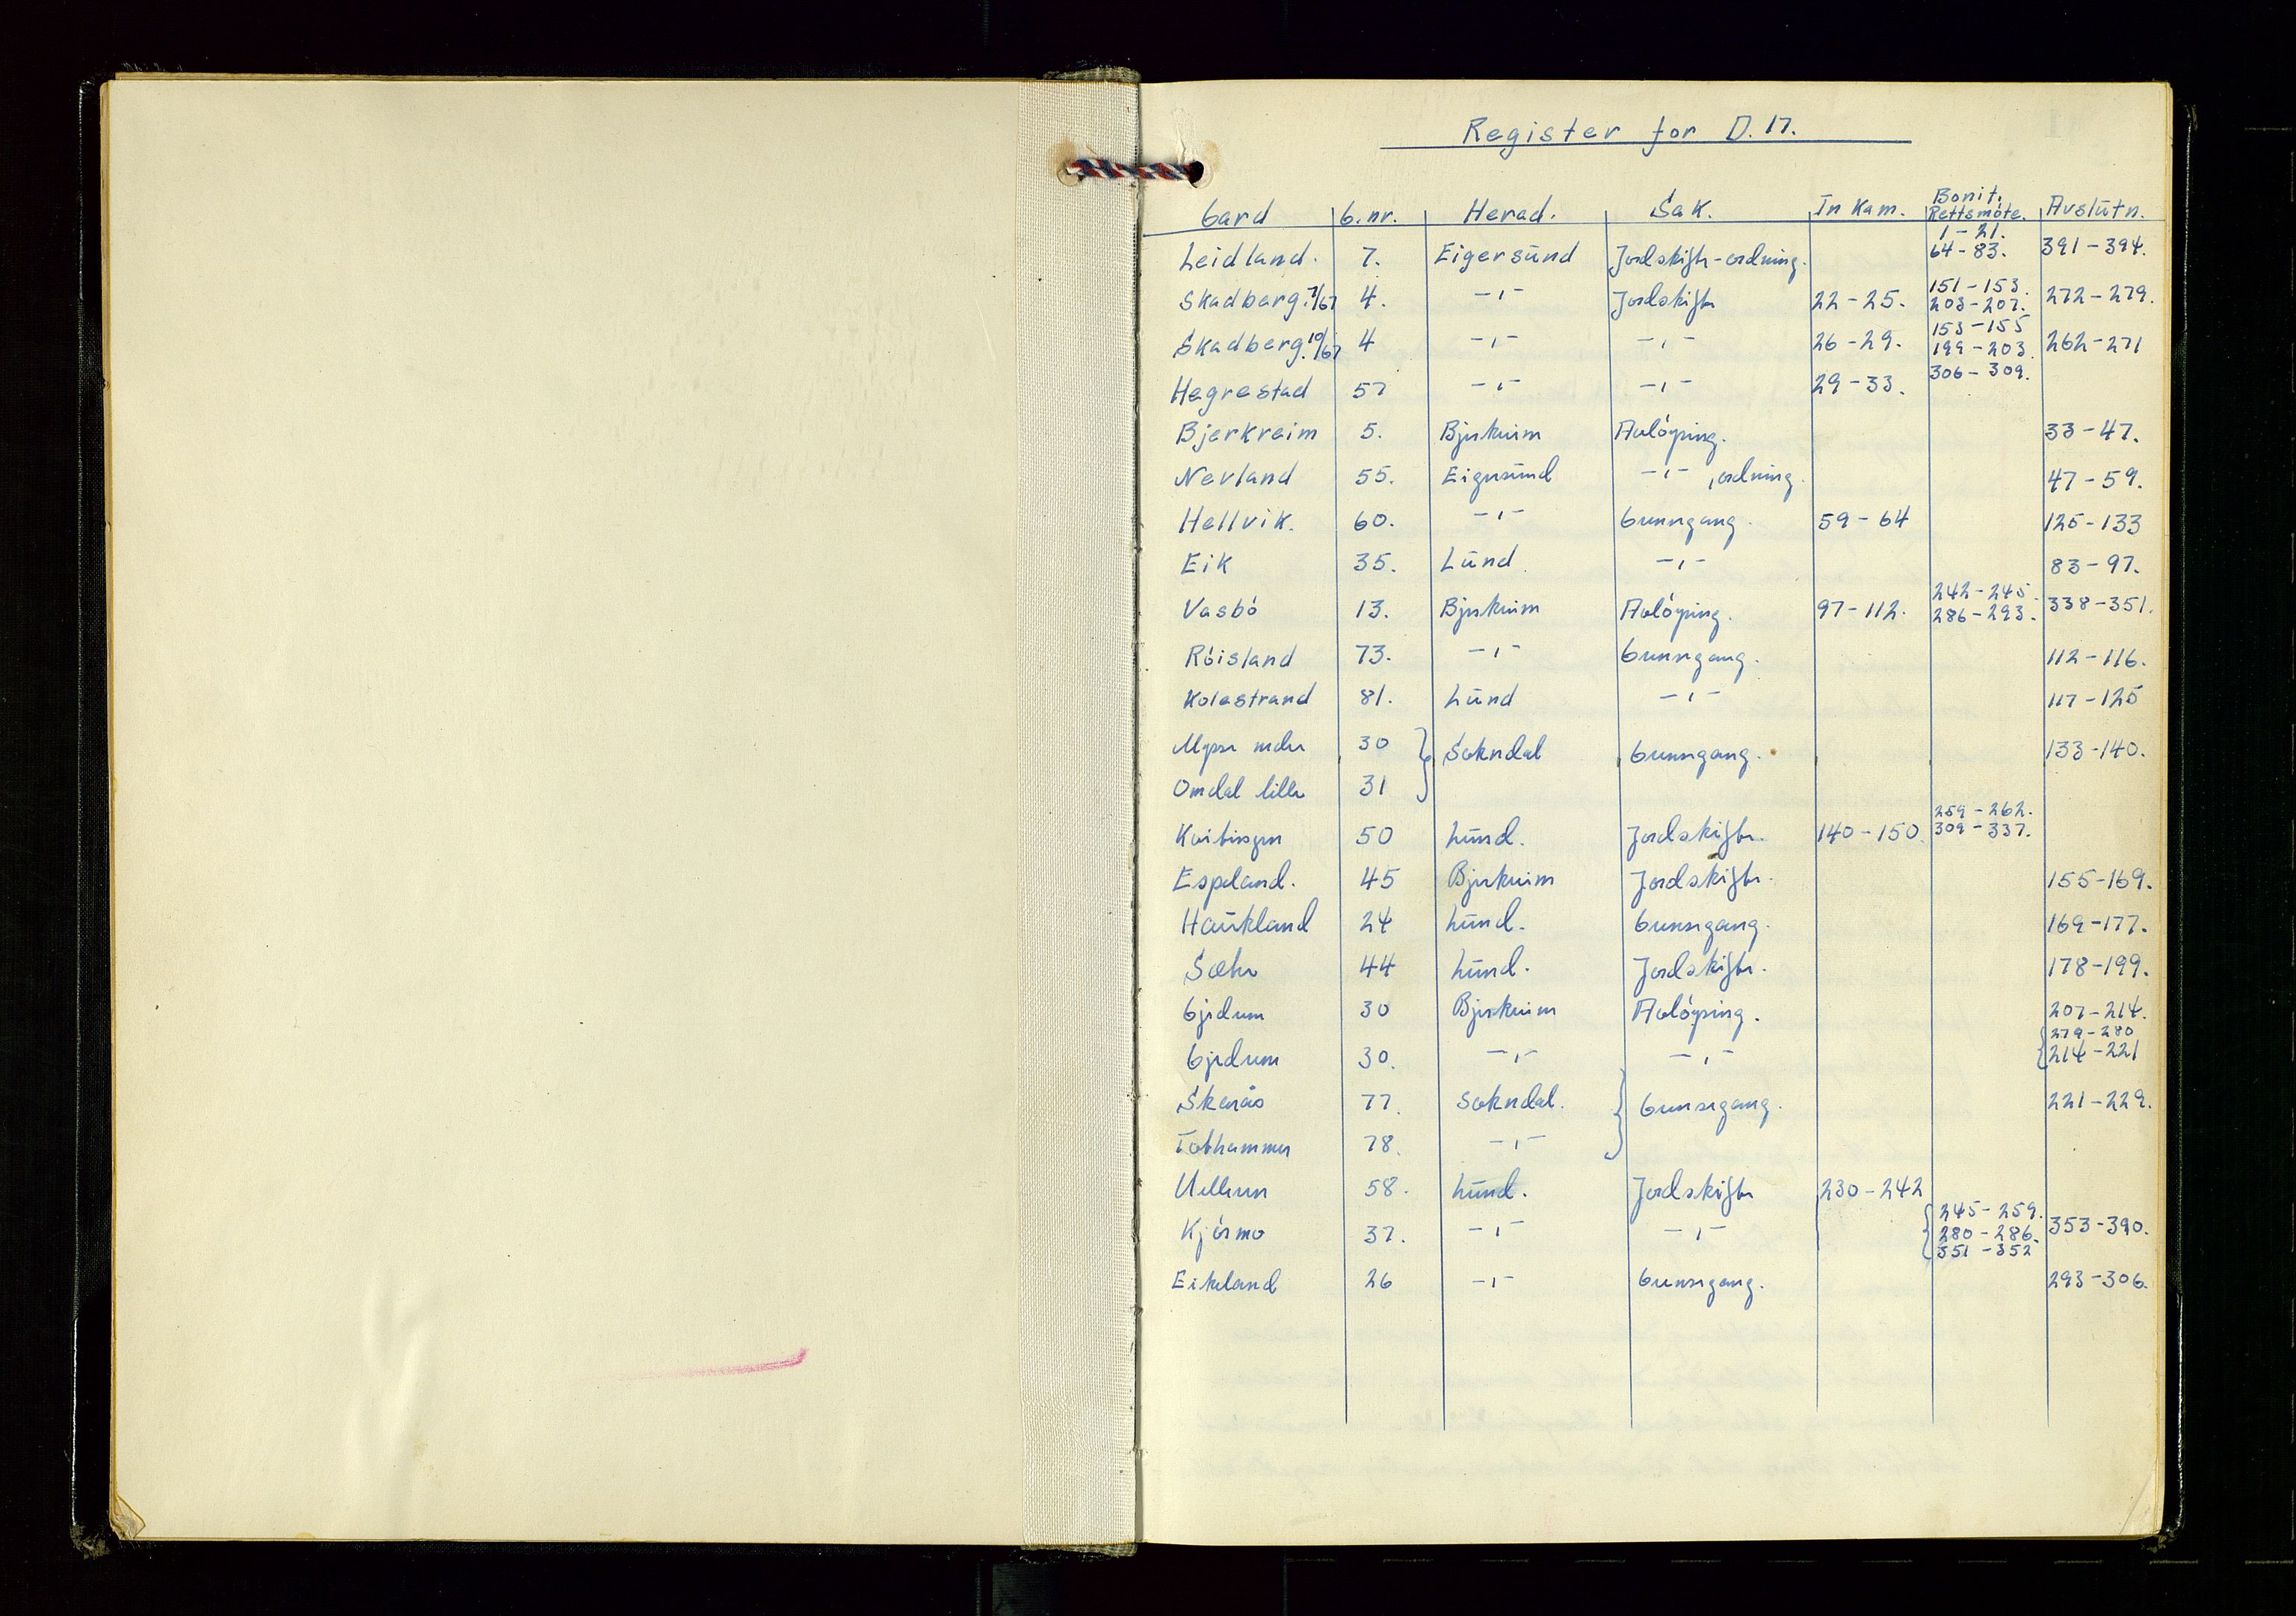 Register for D. 17.
Gard G.nr. Herad. Sak. Innkam. Bonit. Rettsmöte. Avslutn.
Leidland. 7. Eigersund Jordskifte-ordning. 1-21. 64-83. 391-394.
Skadberg. 7/67 4. -"- Jordskifte 22-25. 151-153. 203-207. 272-279.
Skadberg. 10/67 4 -"- -"- 26-29. 153-155 199-203. 262-271
Hegrestad 57 -"- -"- 29-33. 306-309.
Bjerkreim 5. Bjerkreim Avlöysing. 33-47.
Nevland 55. Eigersund -"- , ordning. 47-59.
Hellvik. 60. -"- Grensegang. 59-64 125-133
Eik 35. Lund. -"- 83-97.
Vasbö 13. Bjerkreim Avlöysing. 97-112. 242-245. 286-293. 338-351.
Röisland 73. -"- Grensegang. 112-116.
Kolestrand 81. Lund -"- 117-125
Mysse nedre 30 Sokndal Grensegang. 133-140.
Omdal lille 31
Kvitingen 50 Lund. Jordskifte. 140-150. 259-262. 309-337.
Espeland. 45 Bjerkreim Jordskifte. 155-169.
Haukland 24 Lund. Grensegang. 169-177.
Sætre 44 Lund. Jordskifte. 178-199.
Gjedrem 30 Bjerkreim Avlöysing. 207-214.
Gjedrem 30. -"- -"- 279-280 214-221
Skarås 77. Sokndal. Grensegang. 221-229.
Tothammer 78. -"-
58. Lund. Jordskifte 230-242
Kjörmo 37. -"- -"- 245-259. 280-286. 351-352 353-390.
Eikeland 26 -"- Grensegang. 293-306.